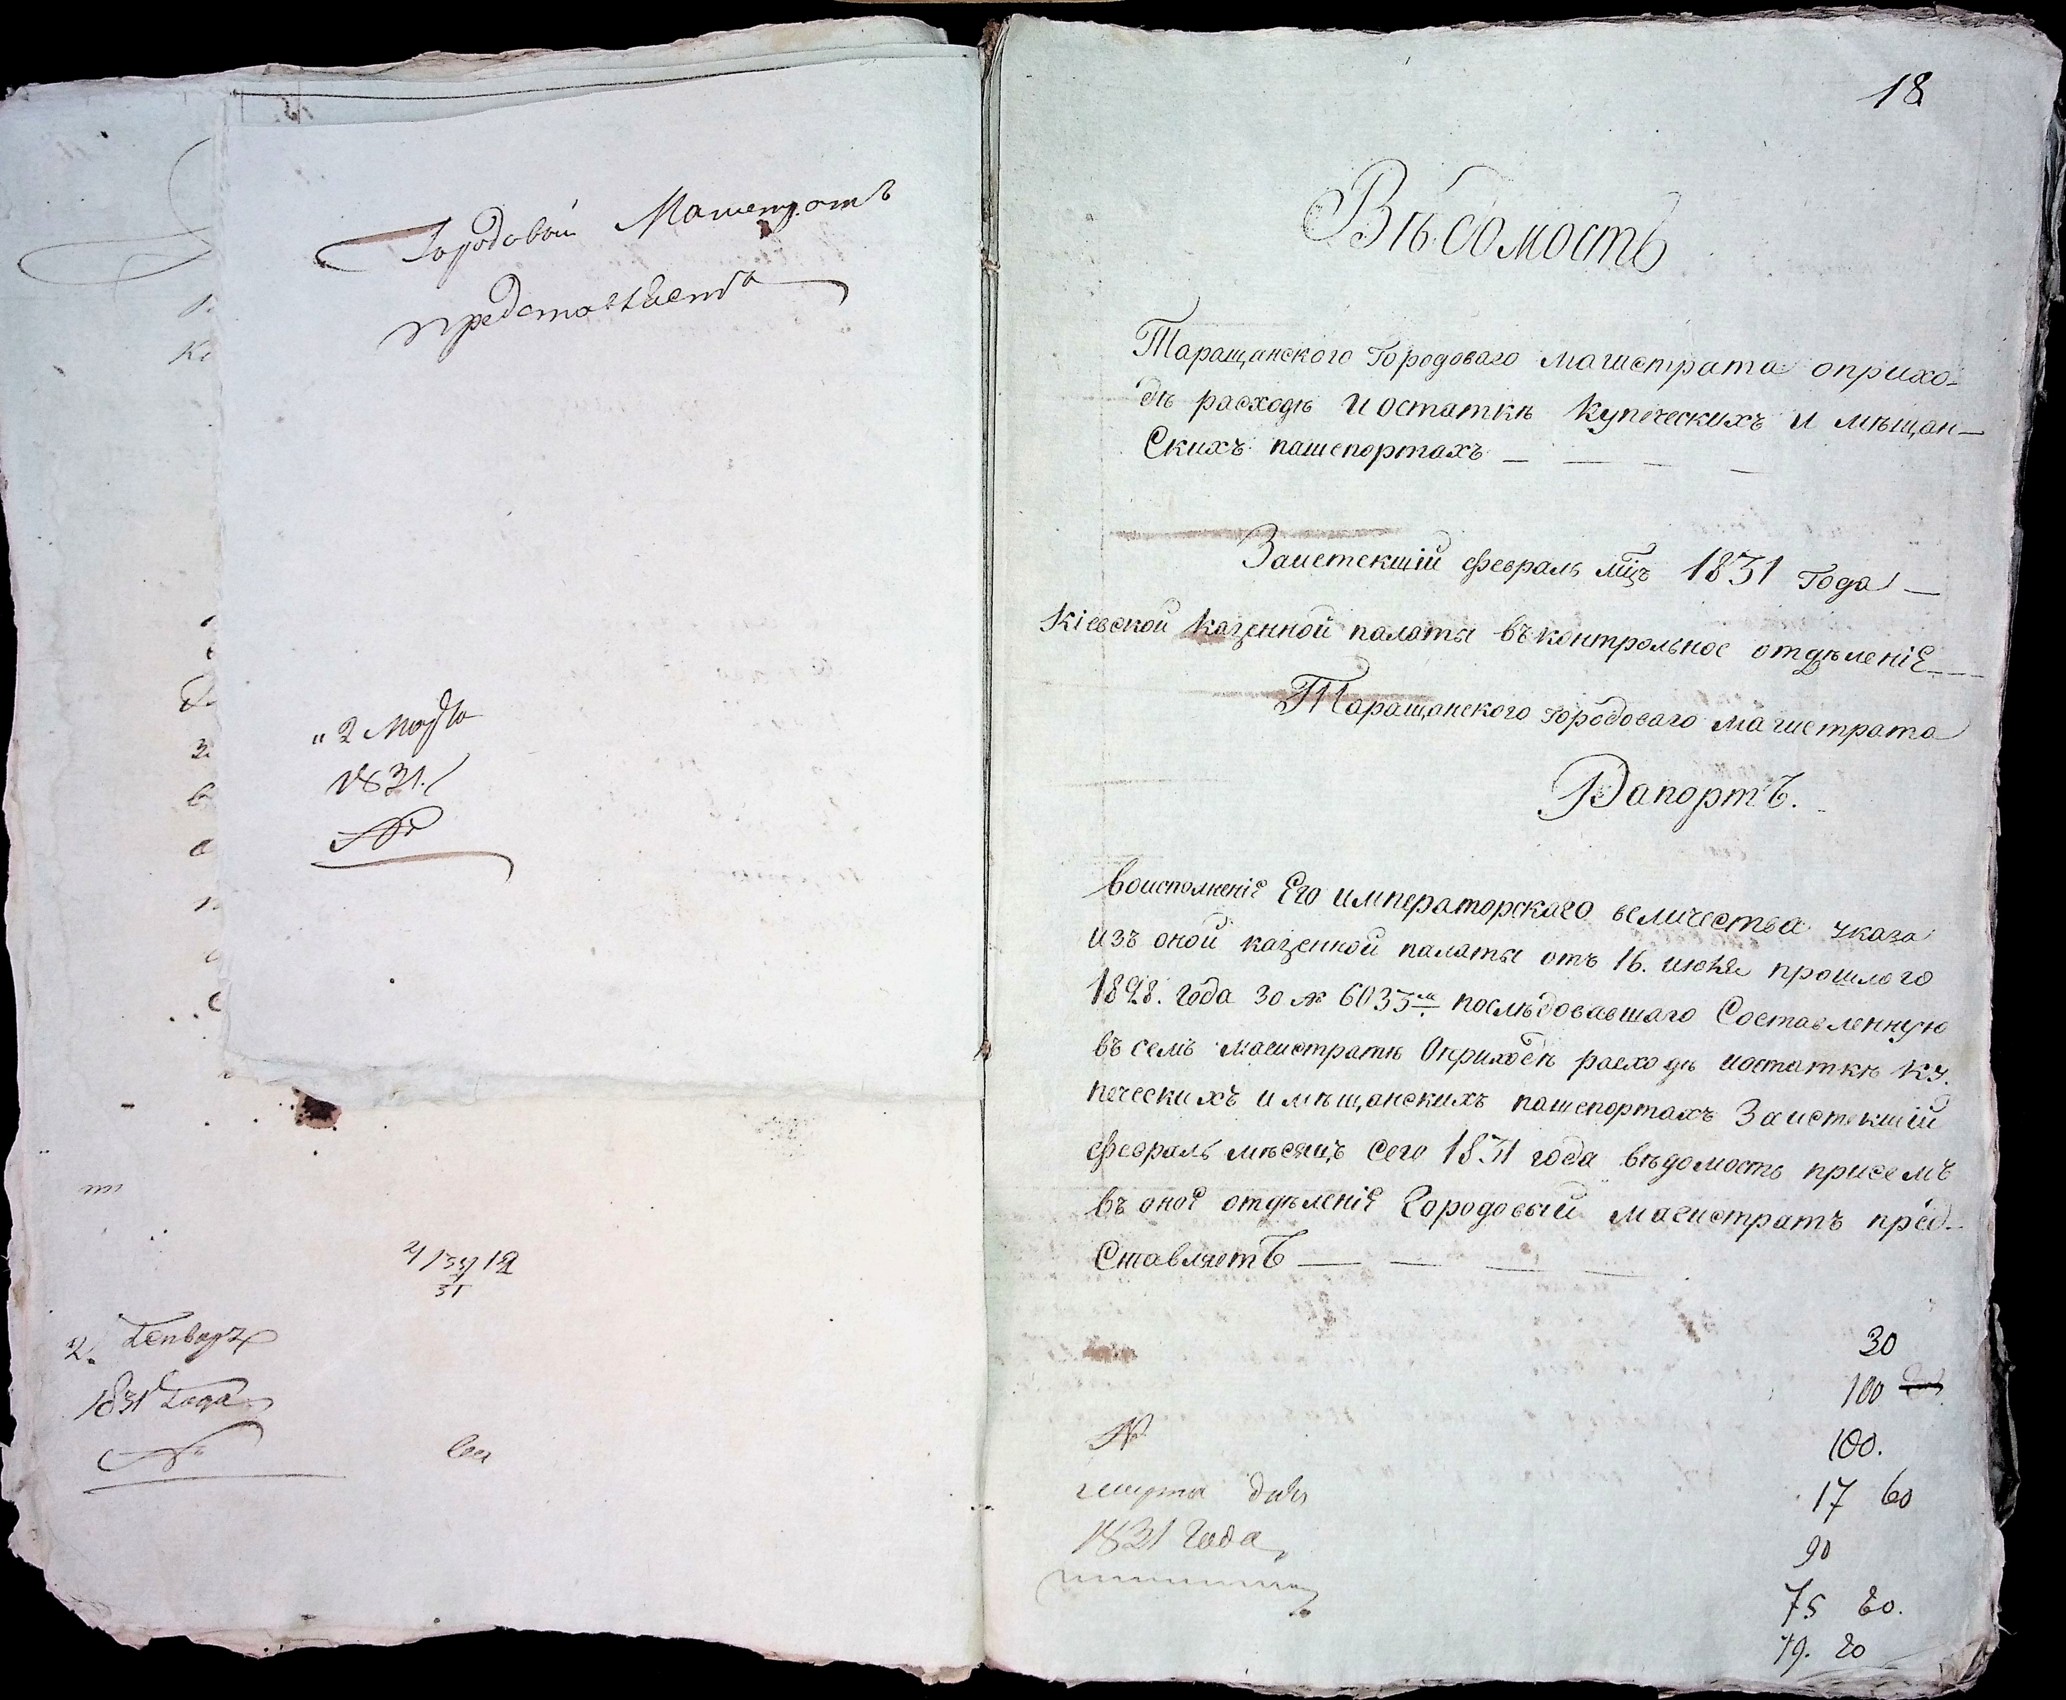 Городовой Магистратъ
представляетъ
"2 Марта
1831.
№
2/31/12
31
2. Генваря
1831 Года
№
18
Вѣдомость
Таращанского Городоваго магистрата оприхо-
дѣ расходѣ и остаткѣ купеческихъ и мѣщан-
скихъ пашепортахъ
Заистекшій февраль мцъ 1831 Года
Кіевской казенной палаты въконтрольное отдѣленіе
Таращанского Городоваго магистрата
Рапортъ.
Воисполненіе Его императорскаго величества указа
изъ оной казенной палаты отъ 16. июня прошлого
1828. Года за № 6035м послѣдовавшаго Составленную
въ семъ магистратѣ Оприходѣ расходѣ иостаткѣ ку.
печескихъ имѣщанскихъ пашепортахъ Заистекшій
февраль мѣсяцъ сего 1831 года вѣдомость присемъ
въ оное отдѣленіе Городовый магистратъ пред-
ставляетъ
30
100
№
100.
марта дня
17 60
1831 Года
90
75 20.
79. 20